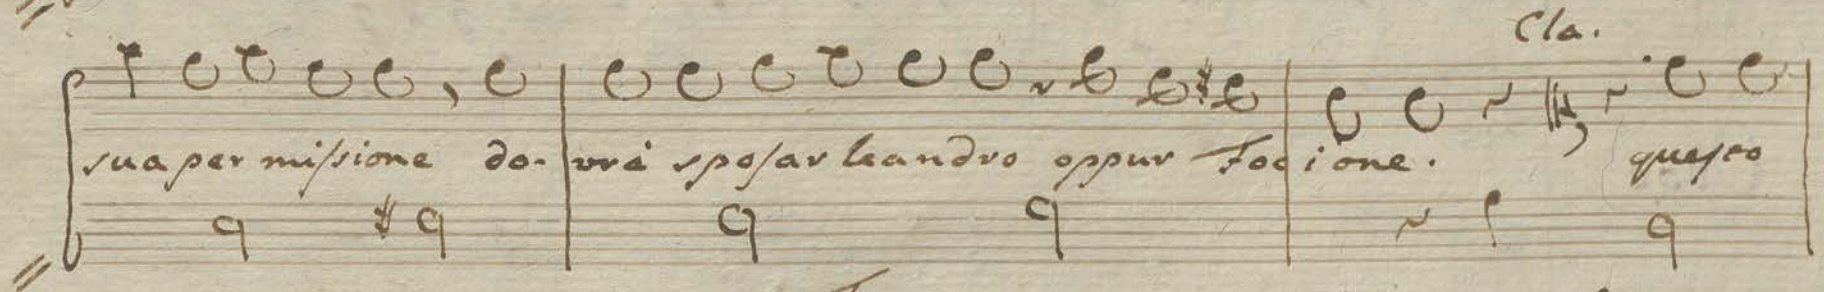 Cla.
sua permiſsione do- vrá spoſar leandro oppur Focione. queſto